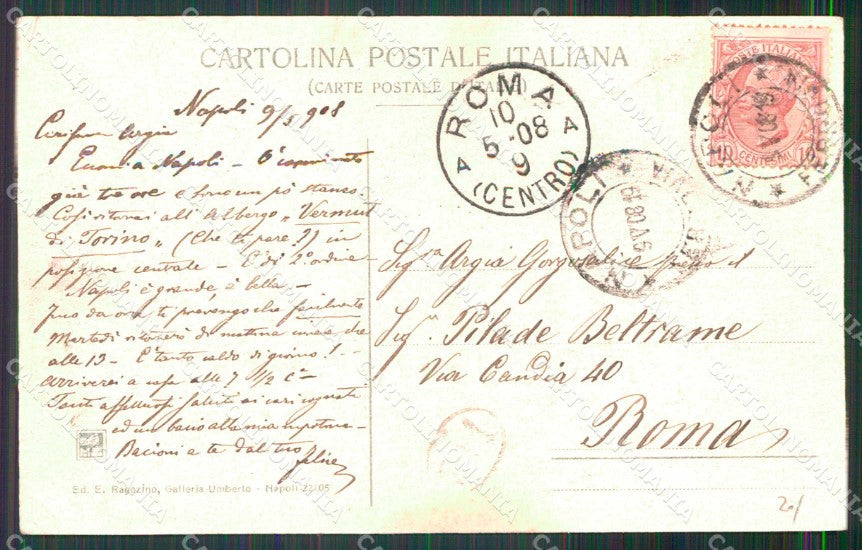 CARTOLINA POSTALE ITALIANA
(CARTE POSTALE D'ITALIE)
Napoli 9/5 908
Carissima Argia
Eccomi a Napoli - Ò camminato
già tre ore e sono un pò stanco
Così ritornai all'Albergo "Vermut
di Torino" (Che ti pare?) in
posizione centrale - È di 2° ordine
Napoli è grande, è bella -
fino da ora ti prevengo che facilmente
Martedì ritornerò di mattina che
alle 13 - È tanto caldo di giorno! -
arriverei a casa alle 7 1/2 
Tanti affettuosi saluti ai cari cognati
ed un bacio alla mia nipotina -
Bacioni a te dal tuo
Felice
Ed. E. Ragozino, Galleria Umberto - Napoli 22105
ROMA
10
5-08
9
(CENTRO)
POSTE ITALIANE
10 CENTESIMI 10
NAPOLI
FERROVIA
9 V 08
NAPOLI
9 V 08 19
Sig.ra Argia Gorgosalice presso il
Sig.r Pilade Beltrame
Via Candia 40
Roma
20/
CARTOLINOMANIA